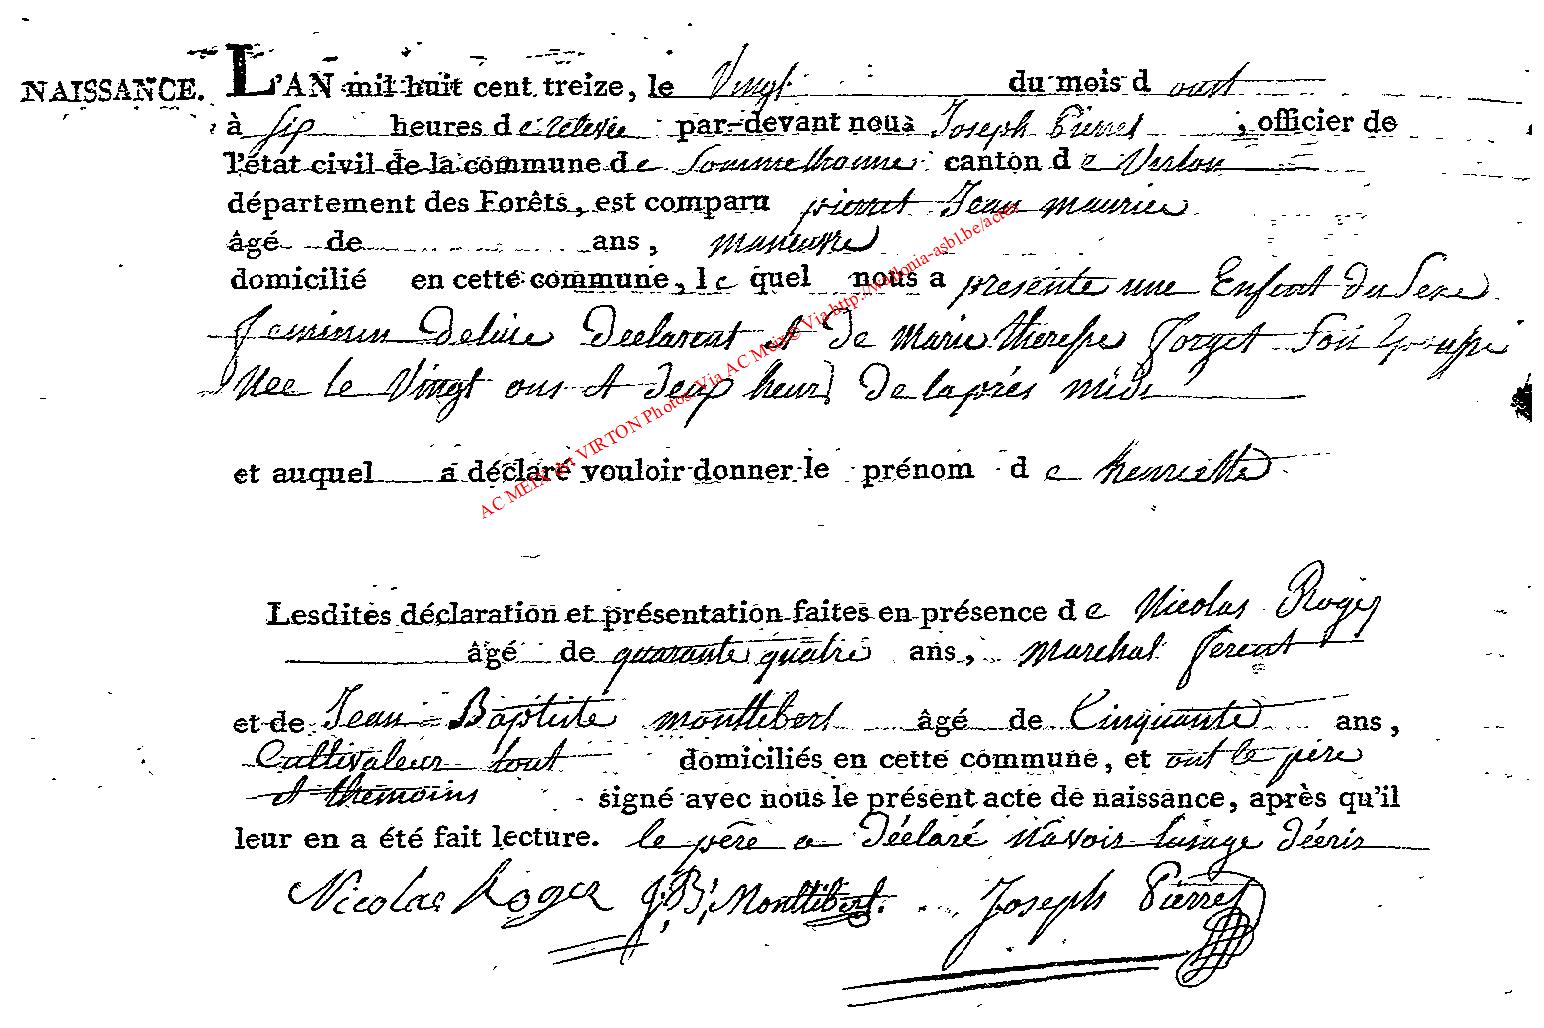 NAISSANCE. L'AN mil huit cent treize, le Vingt du mois d oust
à six heures de relevée par-devant nous Joseph Pierret, officier de
l'état civil de la commune de Sommethonne canton de Virton
département des Forêts, est comparu pierret Jean maurice
âgé de ans, maneuvre
domicilié en cette commune, le quel nous a présenté une Enfent du Sexe
feminin De luie Declarent et De Marie theresse forget Son Epousse
Nee le Vingt ous A deux heurs De la prés midi
et auquel a déclaré vouloir donner le prénom de henriette
Lesdites déclaration et présentation faites en présence de Nicolas Roger
âgé de quarante quatre ans, marchal ferent
et de Jean Baptiste monttibert âgé de Cinquante ans,
Cultivateur tout domiciliés en cette commune, et ont le père
et themoins signé avec nous le présent acte de naissance, après qu'il
leur en a été fait lecture. le père a Déclaré N'avoir lusage décrir
Nicolas Roger J: B: Monttibert. Joseph Pierret
AC MEIX dvt VIRTON Photos Via AC Meix© Via http://wallonia-asbl.be/actes